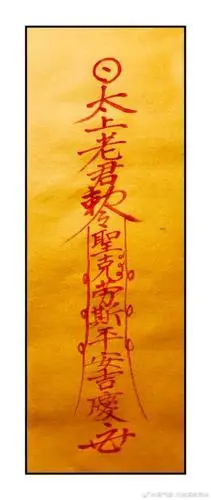 太上老君敕令聖克劳斯平安吉慶